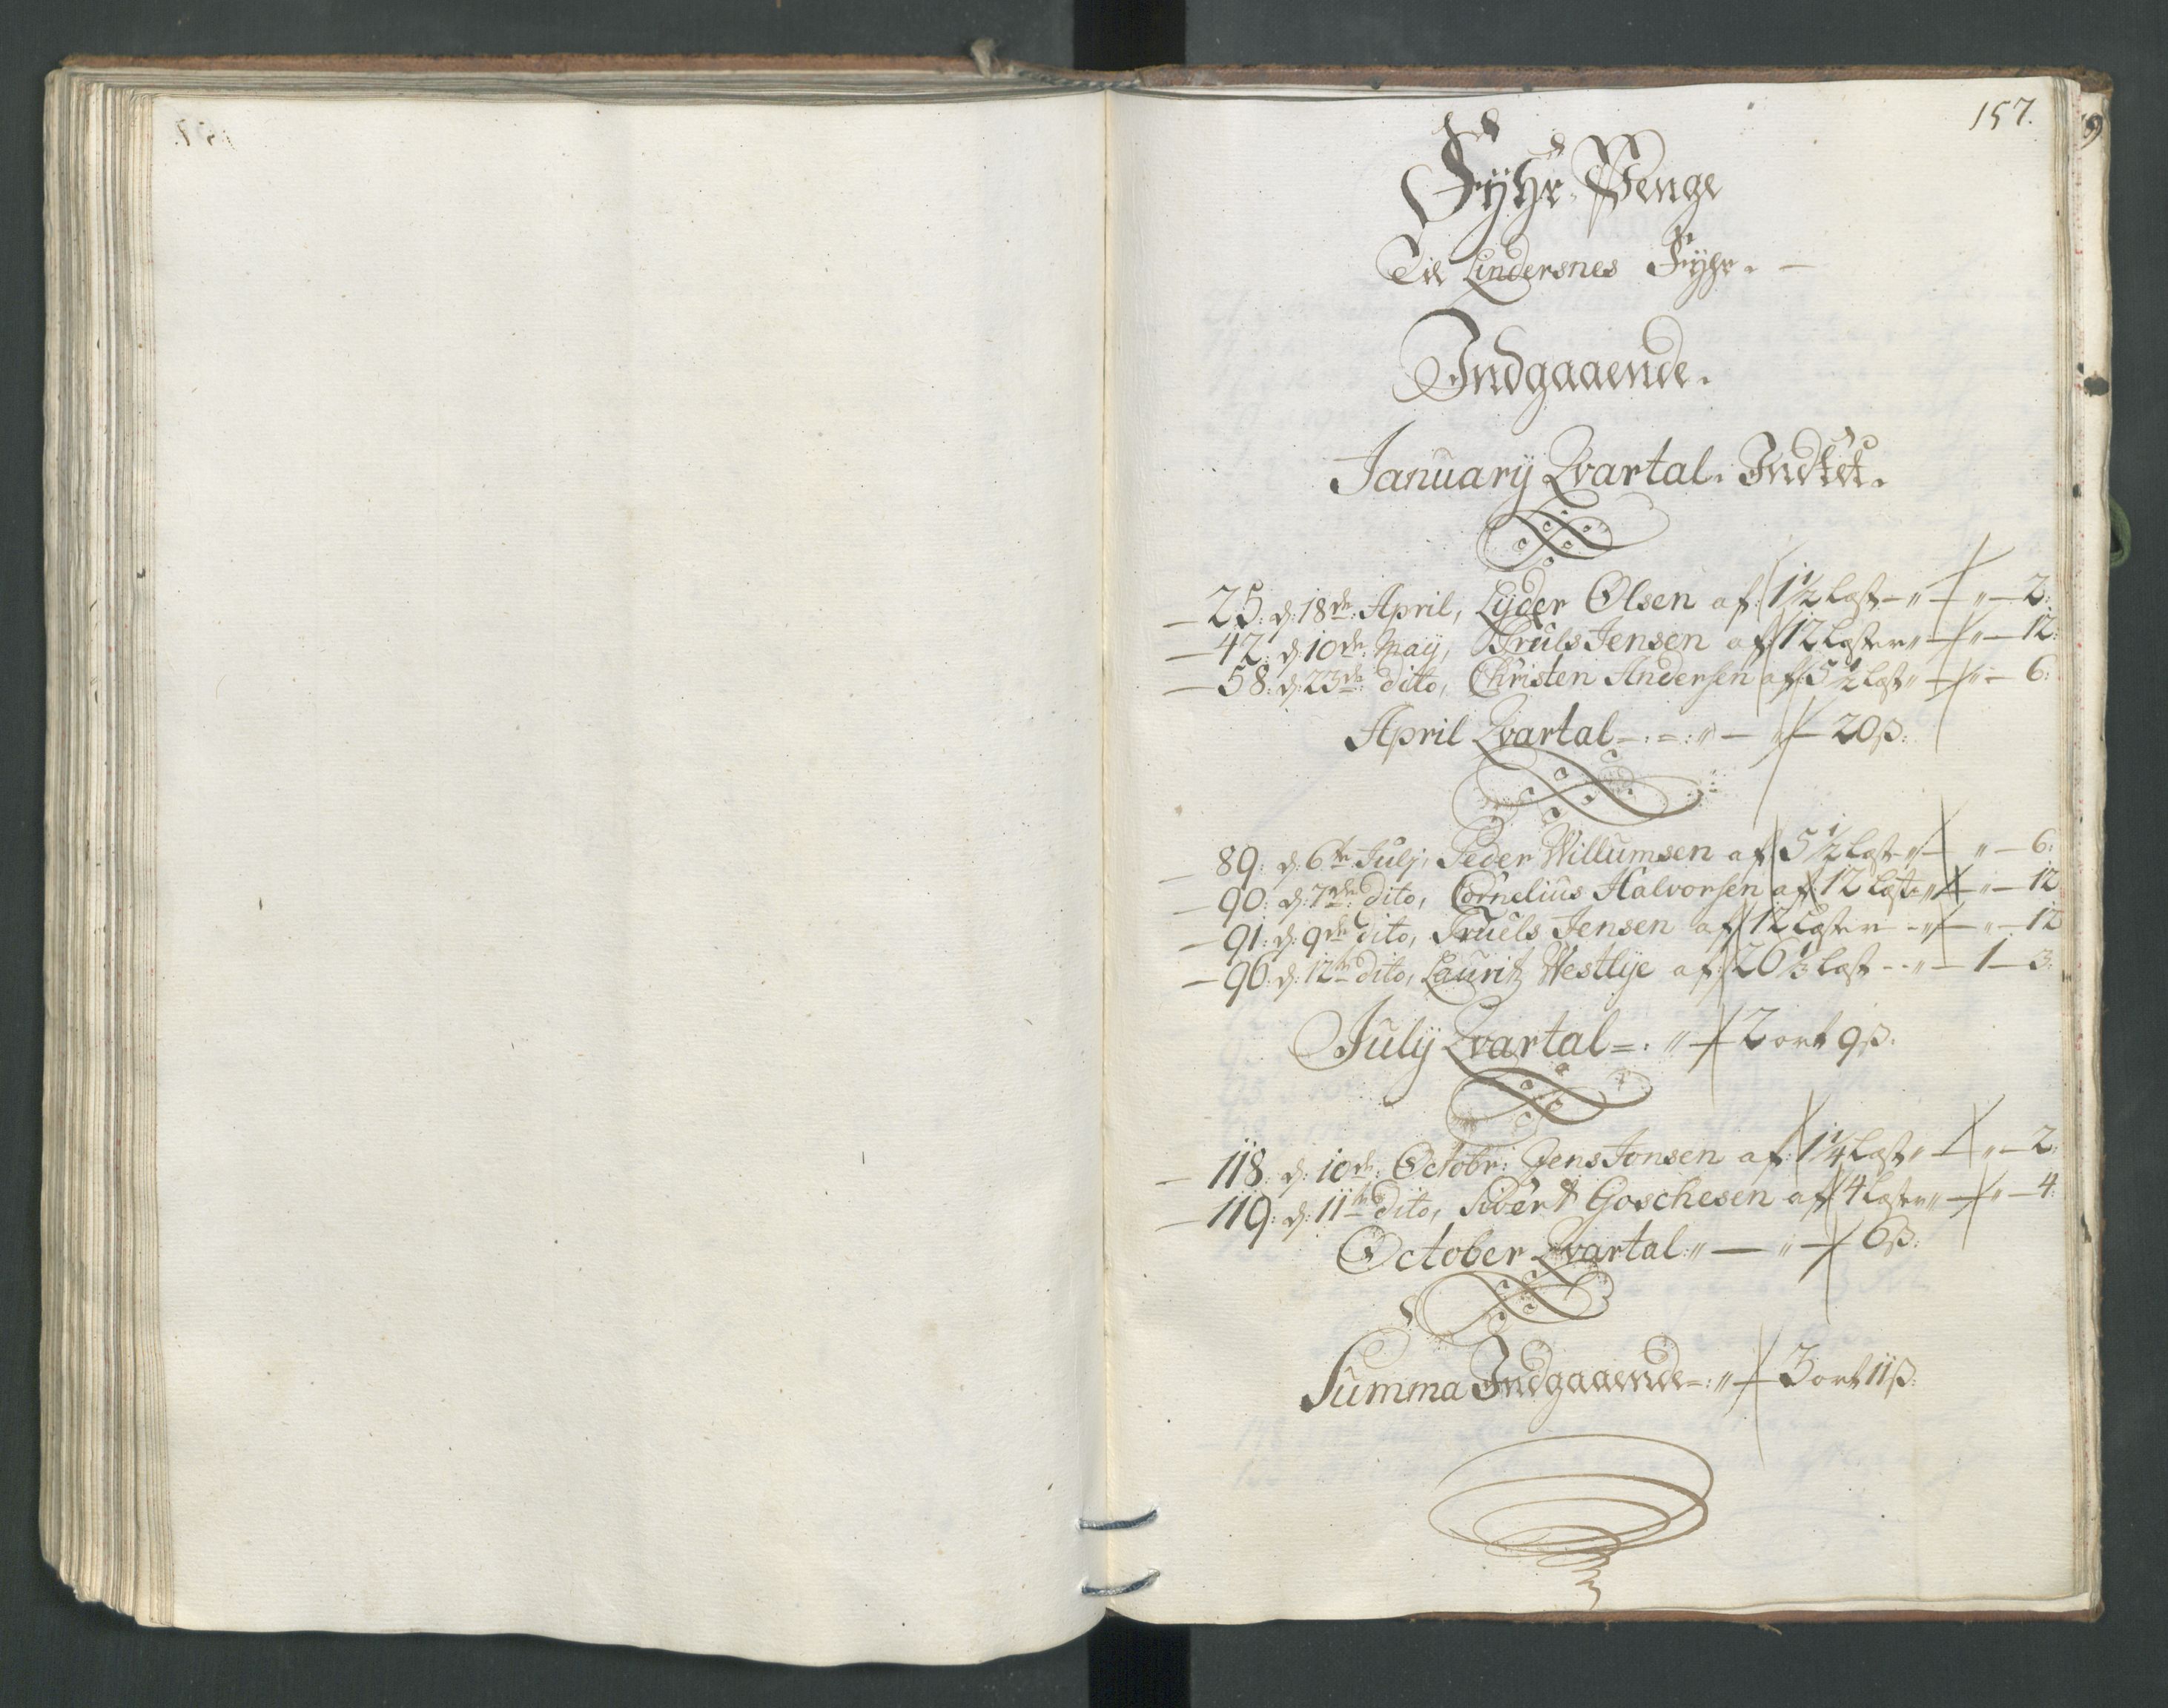 157.
Fÿhr Penge
Til Lindersnes Fÿhr. —
Indgaaende.
Januarÿ Qvartal. Indtet.
— 25: d: 18de: April, Lÿder Olsen af 1½ læst — „ — „ — 2:
— 42: d: 10de: Maÿ, Truls Jensen af 12 læster „ — „ — 12:
— 58: d: 23de: dito, Christen Andersen af 5½ læst „ — „ — 6:
April Qvartal — „ — „ — 20 ß:
— 89: d: 6te Julÿ, Peder Willumsen af 5½ læst „ — „ — 6:
— 90: d: 7de: dito, Cornelius Halvorsen af 12 læst „ — „ — 12
— 91: d: 9de dito, Truels Jensen af 12 læster „ — „ — 12
— 96: d: 12te dito, Lauritz Westlÿe af 26⅓ læst — „ — 1 — 3:
Julÿ Qvartal =: „ — 2 ort 9 ß:
— 118: d: 10de: Octobr: Jens Jonsen af 1¼ læst „ — „ — 2:
— 119: d: 11te dito, Sivert Goschesen af 4 læster „ — „ — 4:
October Qvartal „ — „ — 6 ß:
Summa Indgaaende =: „ — 3 ort 11 ß: